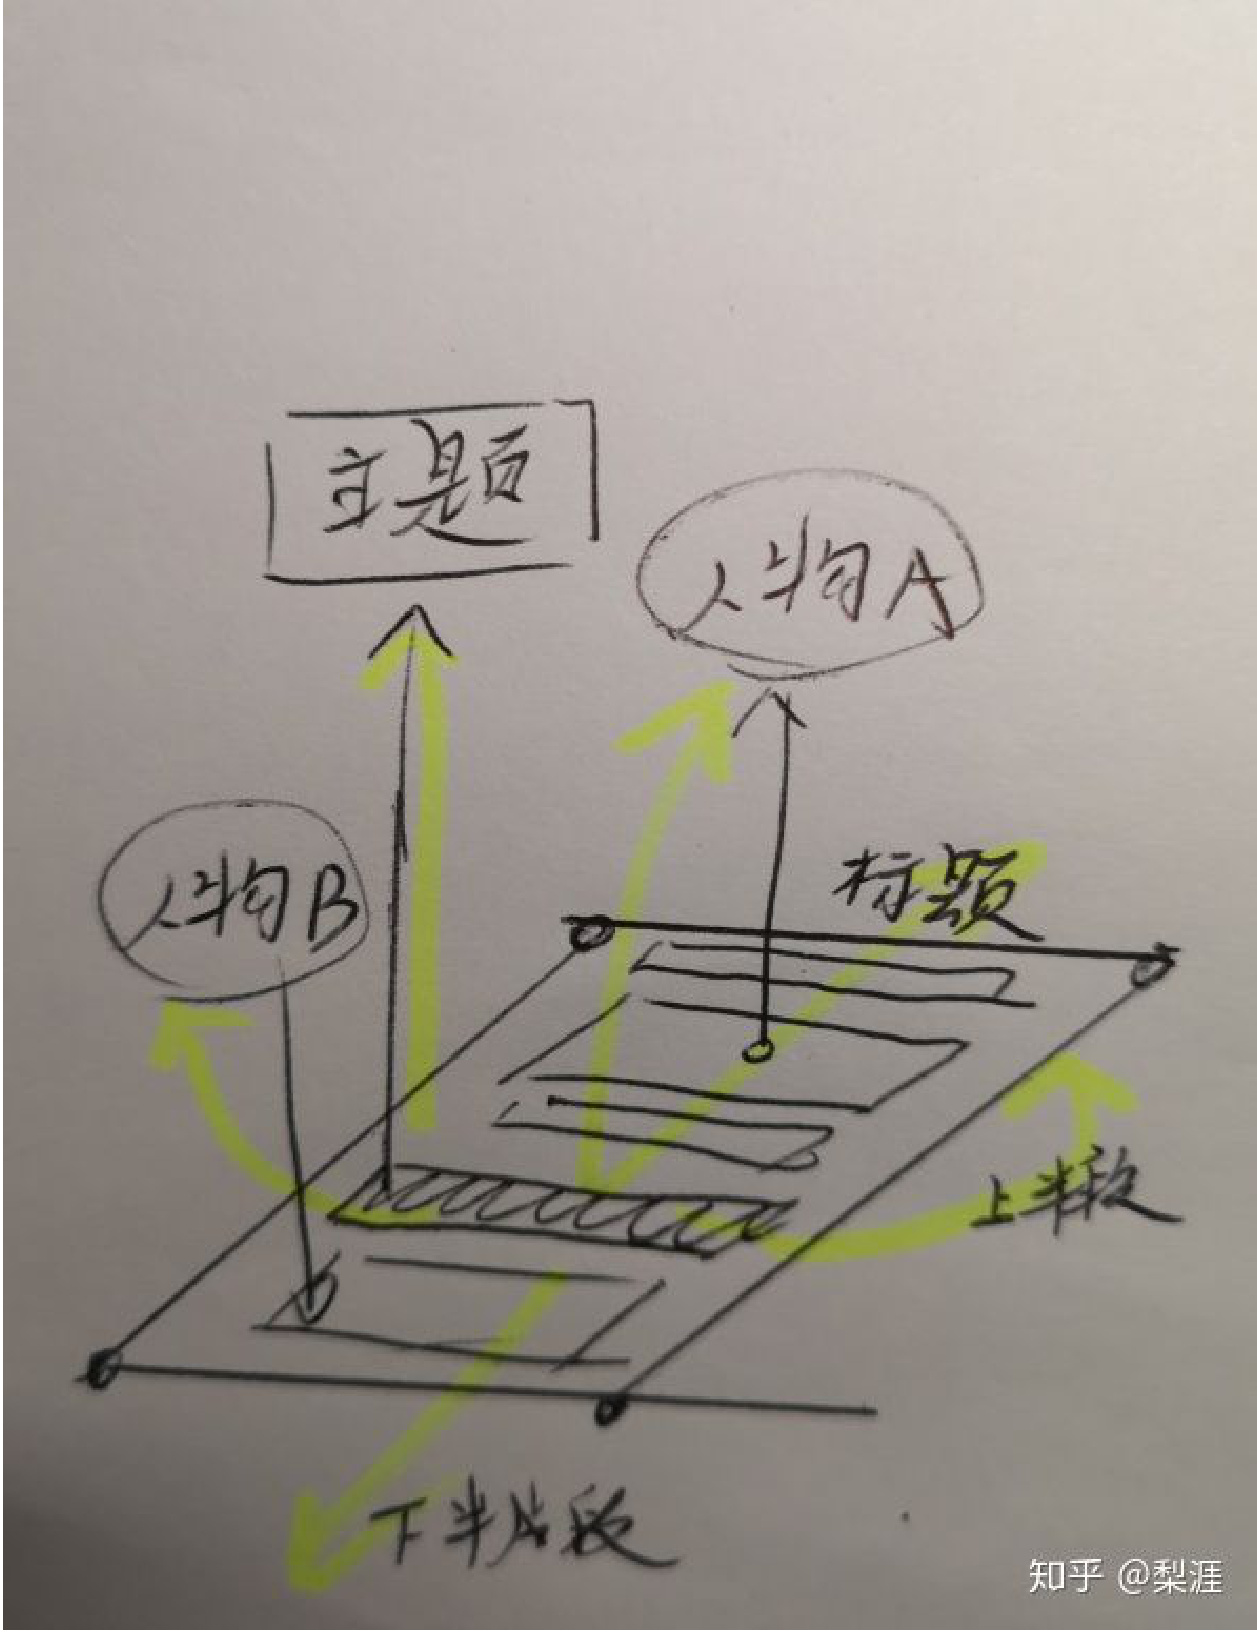 主题
人物A
人物B
标题
上半段
下半片段
知乎 @梨涯